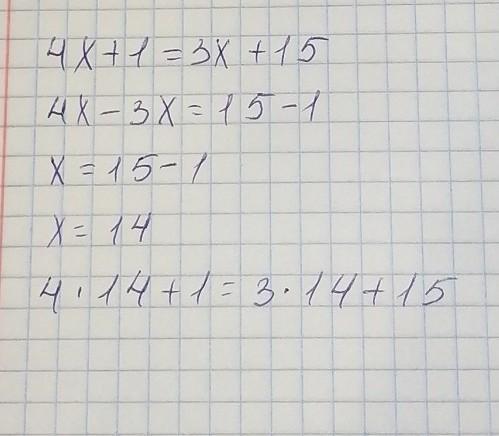 4x+1=3x+15
4x-3x=15-1
x=15-1
x=14
4·14+1=3·14+15